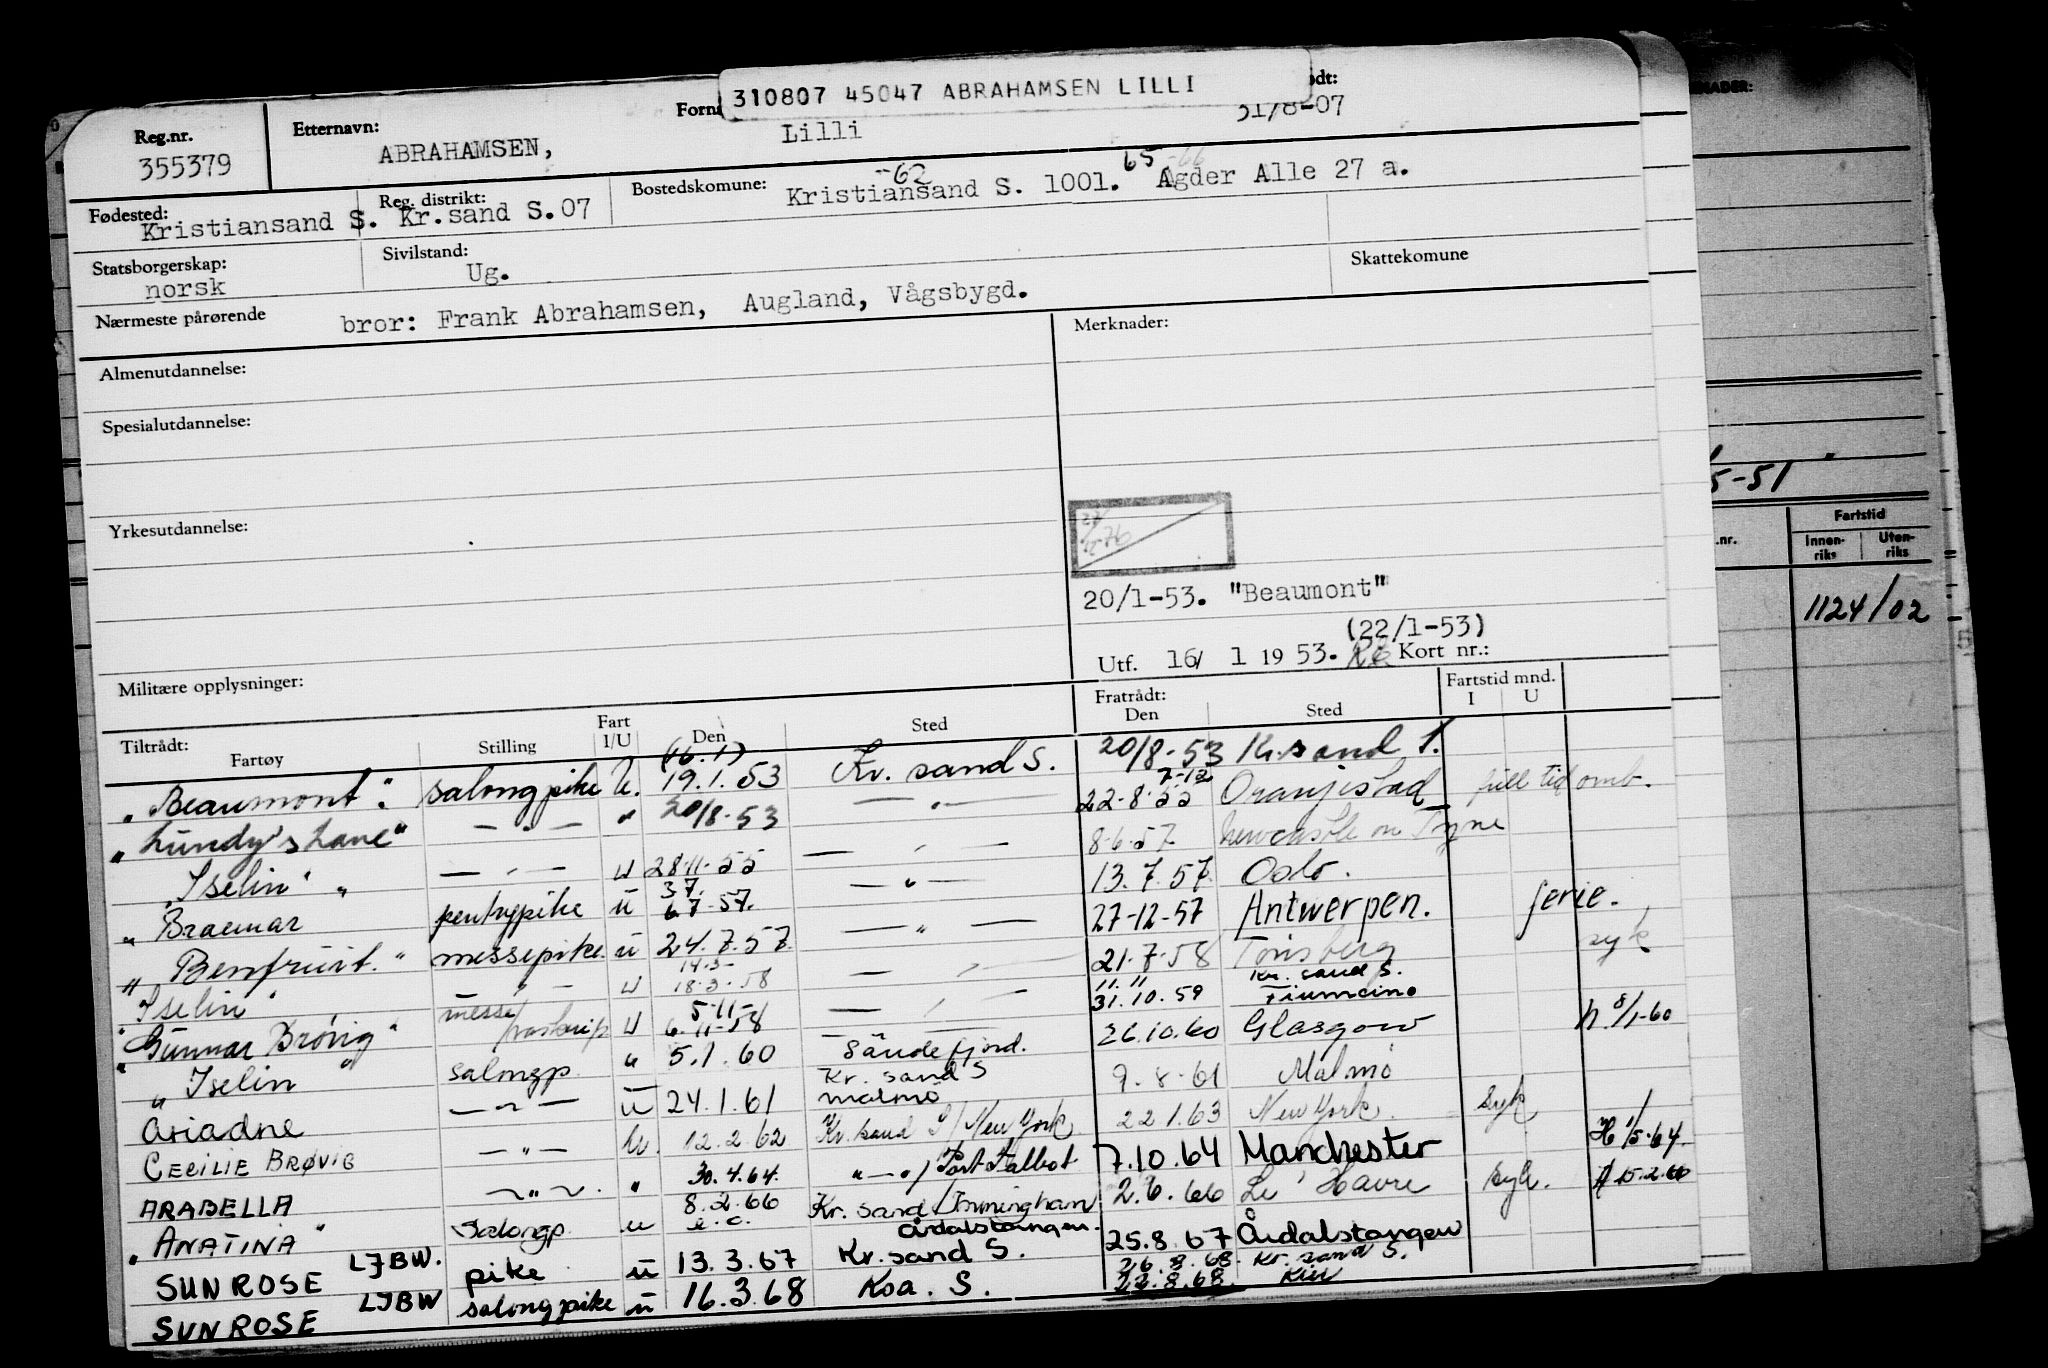 310807 45047 ABRAHAMSEN LILLI
Reg.nr. 355379
Etternavn: ABRAHAMSEN,
Forn Lilli
ødt: 31/8-07
Fødested: Kristiansand S.
Reg. distrikt: Kr.sand S.07
Bostedskomune: Kristiansand S. 1001. Agder Alle 27 a.
-62 65 -66
Statsborgerskap: norsk
Sivilstand: Ug.
Skattekomune
Nærmeste pårørende bror: Frank Abrahamsen, Augland, Vågsbygd.
Merknader:
Almenutdannelse:
Spesialutdannelse:
Yrkesutdannelse:
20/1-53. "Beaumont"
(22/1-53)
Utf. 16/ 1 19 53. Kort nr.:
Militære opplysninger:
Tiltrådt: Fartøy Stilling Fart I/U Den Sted Fratrådt: Den Sted Fartstid mnd. I U
"Beaumont". salongpike U. (16.1) 19.1.53 Kr. sand S. 20/8-53 Kr. sand S.
"Lundy's Lane" — " — " 20/8-53 — " — 22-8-55 7-12 Oranjestad full tid omb.
"Iselin" — " — u 28-11-55 — " — 8-6-57 Newcastle on Tyne
"Braemar pentrypike u 3.7. 6.7-57. — " — 13.7.57. Oslo.
"Benfruit." messepike. u 24.7.57. — " — 27-12-57 Antwerpen. ferie.
"Iselin" — " — u 14-3- 18-3-58 — " — 21-7-58 Tønsberg syk
"Gunnar Brøvig" messe u 5-11- 6-11-58 — " — 11.11 31.10.59 Kr. sand S. Fiumcino
"Iselin" salongp. " 5.1.60 Sandefjord. 26.10.60 Glasgow h. 8/1-60
Ariadne — " — u 24.1.61 Kr. sand S Malmö 9.8.61 Malmö
CECILIE BRØVIG — " — u. 12.2.62 Kr. sand S/New York. 22 1.63 New York. syk
ARABELLA — " — . " 30.4.64. " — " / Port Talbot 7.10.64 Manchester H 1/5-64.
"ANATINA" salongp. u 8.2.66 Kr. sand S/Immingham 2.6.66 Le Havre syk. A 15.2.66
SUNROSE LJBW. pike u 13.3.67 Kr. sand S. Årdalstangen. 25.8.67 Årdalstangen
SUNROSE LJBW salongpike u 16.3.68 Kr. sand S. 26.8.68. Kr. sand S. Kiel
5-51
Fartstid
.nr. Innen-riks Uten-riks
1124/02